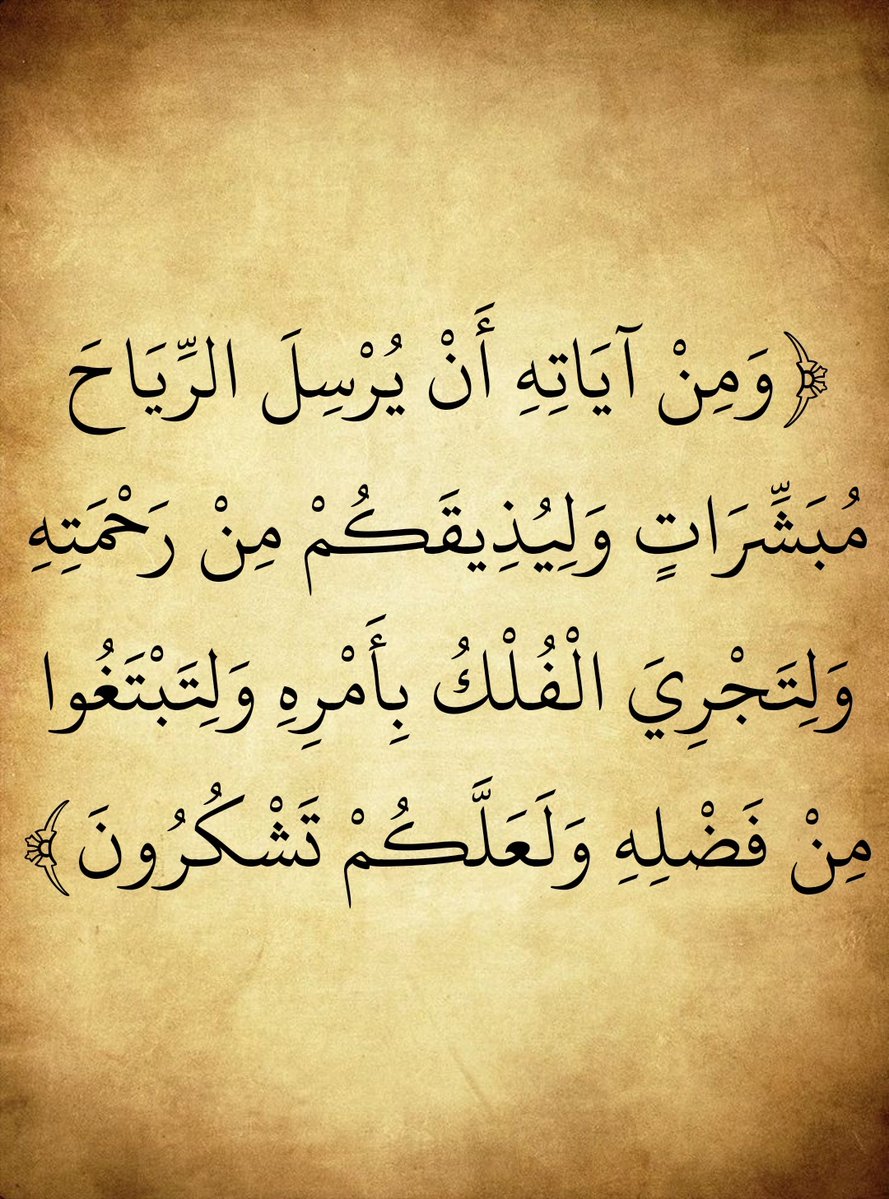 ﴿وَمِنْ آيَاتِهِ أَنْ يُرْسِلَ الرِّيَاحَ
مُبَشِّرَاتٍ وَلِيُذِيقَكُمْ مِنْ رَحْمَتِهِ
وَلِتَجْرِيَ الْفُلْكُ بِأَمْرِهِ وَلِتَبْتَغُوا
مِنْ فَضْلِهِ وَلَعَلَّكُمْ تَشْكُرُونَ﴾